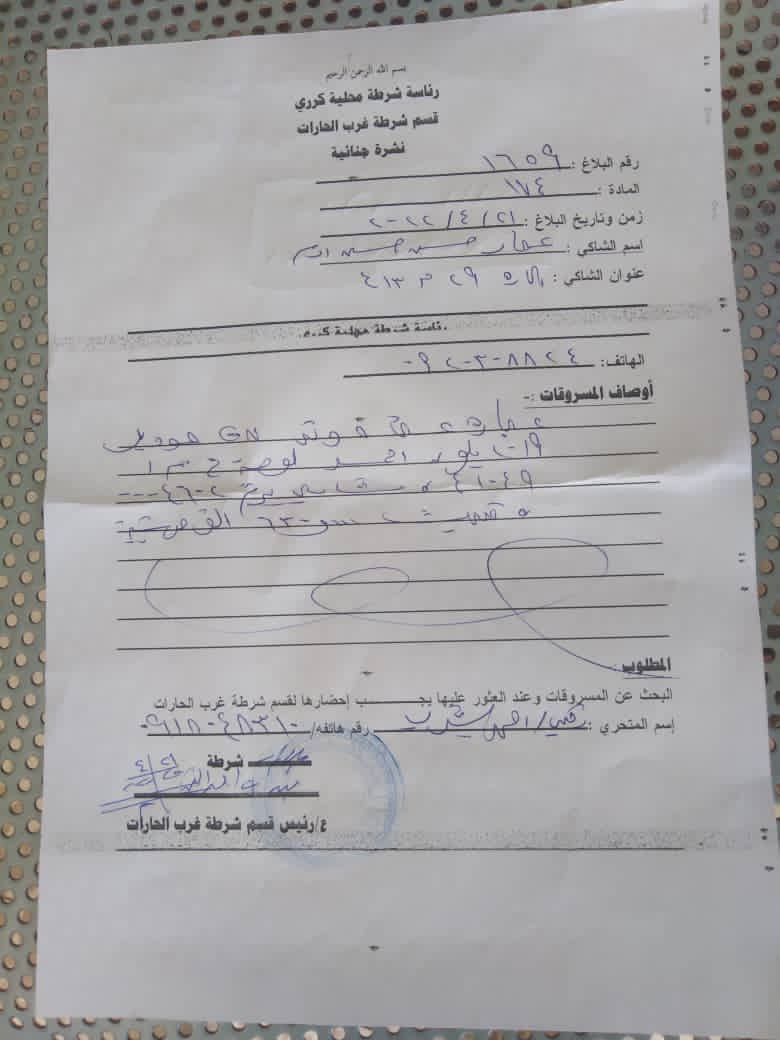 بسم الله الرحمن الرحيم
رئاسة شرطة محلية كرري
قسم شرطة غرب الحارات
نشرة جنائية
رقم البلاغ : ١٦٥٩
المادة : ١٧٤
زمن وتاريخ البلاغ : ٢٠٢٢/٤/٢١
اسم الشاكي : عمار حسن حسين ادم
عنوان الشاكي : ٢٩ م ٤١٣
رئاسة شرطة محلية كرري
الهاتف: ٠٩٢٠٣٠٨٨٢٤
أوصاف المسروقات :-
عبارة عن فوتر GN موديل
٢٠١٩ احمر لوحة خ م ١
٤١٠٤٩
المطلوب :
البحث عن المسروقات وعند العثور عليها يجب إحضارها لقسم شرطة غرب الحارات
إسم المتحري : رقم هاتفه/ ٠٩١٨٠٤٨٣١٠
شرطة
٤/٢١
ع/رئيس قسم شرطة غرب الحارات